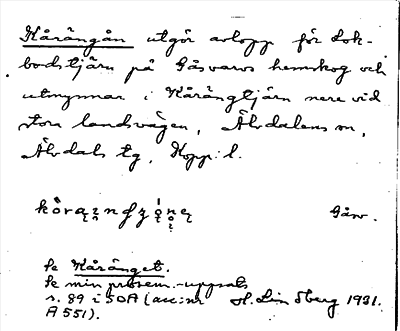 Kårängån utgör avlopp för Lok-
bodstjärn på Gåsvarvs hemskog och
utmynnar i Kårängtjärn nere vid
stora landsvägen, Älvdalens sn,
Älvdals tg, Kopp. l.
Gåsv.
Se Kåränget.
Se min prosem.-uppsats
s. 89 i SOA (acc:nr H. Lindberg 1931.
A 551).